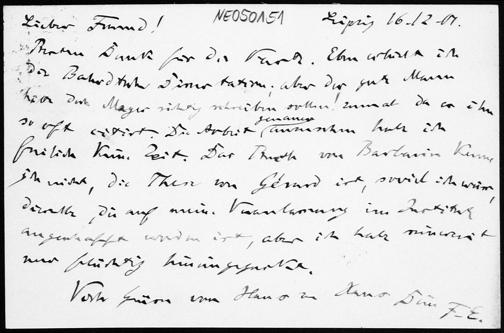 Lieber Freund! NE050151 Leipzig 16.12.01.
Besten Dank für die Karte. Eben erhielt ich
die Dissertation; aber der gute Mann
hätte doch Mayer richtig schreiben sollen! zumal da er ihn
so oft citirt. Die Arbeit genauer ansehen hab ich
freilich keine Zeit. Das Buch von Barbarin kenne
ich nicht, die These von Gérard ist, soviel ich weiss,
dieselbe, die auf meine Veranlassung im Institut
angeschafft worden ist, aber ich habe
nur flüchtig hineingeguckt.
Viele Grüsse von Haus zu Haus Dein F. E.